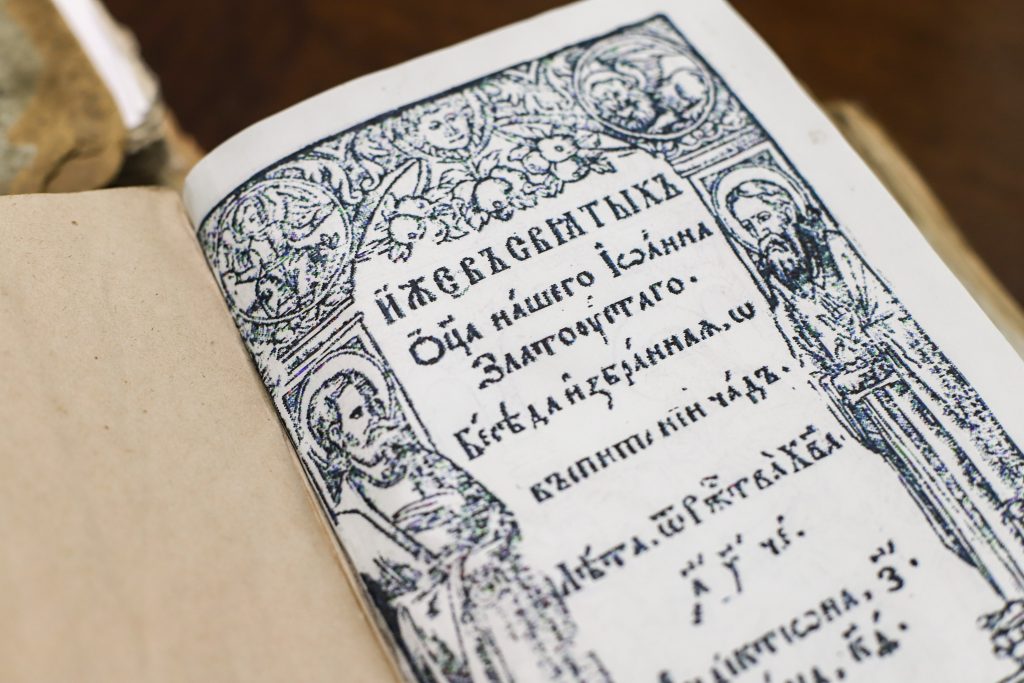 И҆́ЖЕ ВЪ СВѦТЫХЪ
Ѻ҆ц҃а на́шего І҆ѡа́нна
Златоꙋстаго.
Бесѣ́да и҆збра́ннаѧ, ѡ
въспита́нїи ча́дъ.
Лѣ́та. ѿ рж҃тва̀ хв҃а.
҂а҃ ч҃ е҃.
і҆ндїктїѡна, з҃.
к҃д.